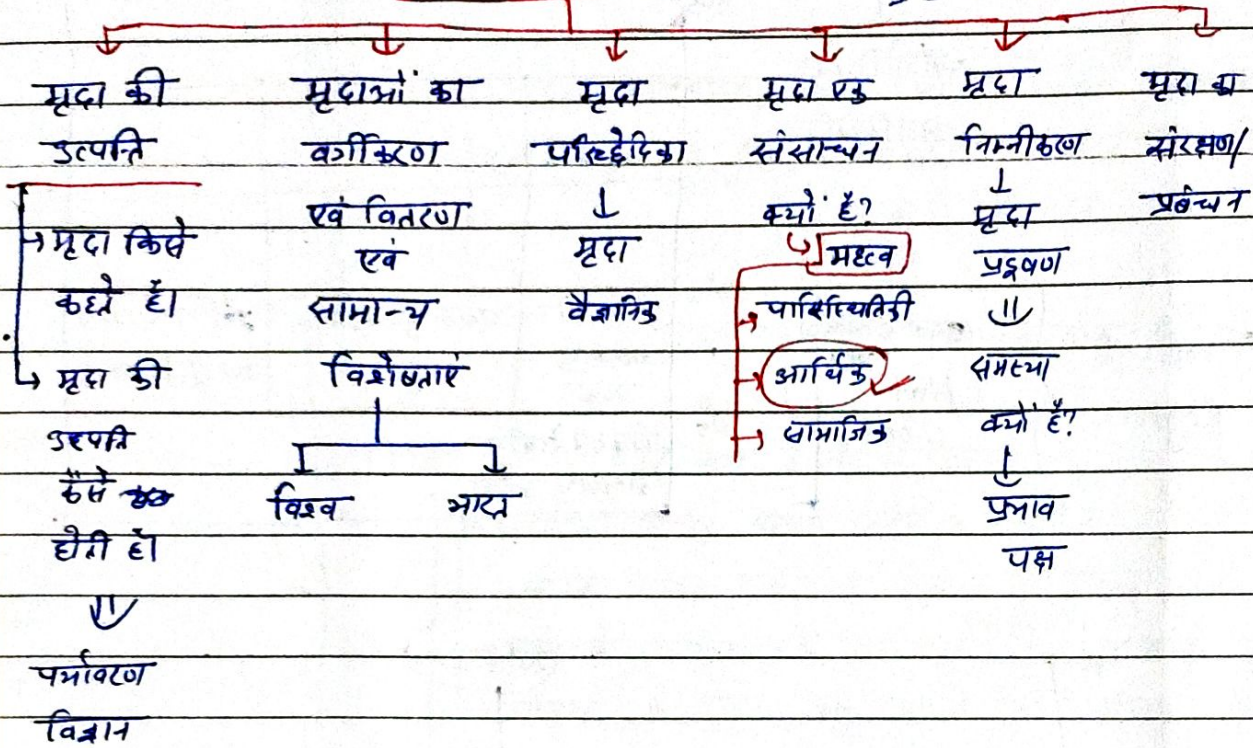 मृदा की
उत्पत्ति
मृदा किसे
कहते हैं।
मृदा की
उत्पत्ति
कैसे
होती है।
पर्यावरण
विज्ञान
मृदाओं का
वर्गीकरण
एवं वितरण
एवं
सामान्य
विशेषताएं
विश्व भारत
मृदा
परिच्छेदिका
मृदा
वैज्ञानिक
मृदा एक
संसाधन
क्यों है?
महत्व
पारिस्थितिकी
आर्थिक
सामाजिक
मृदा
निम्नीकरण
मृदा
प्रदूषण
समस्या
क्यों है?
प्रभाव
पक्ष
मृदा का
संरक्षण/
प्रबंधन